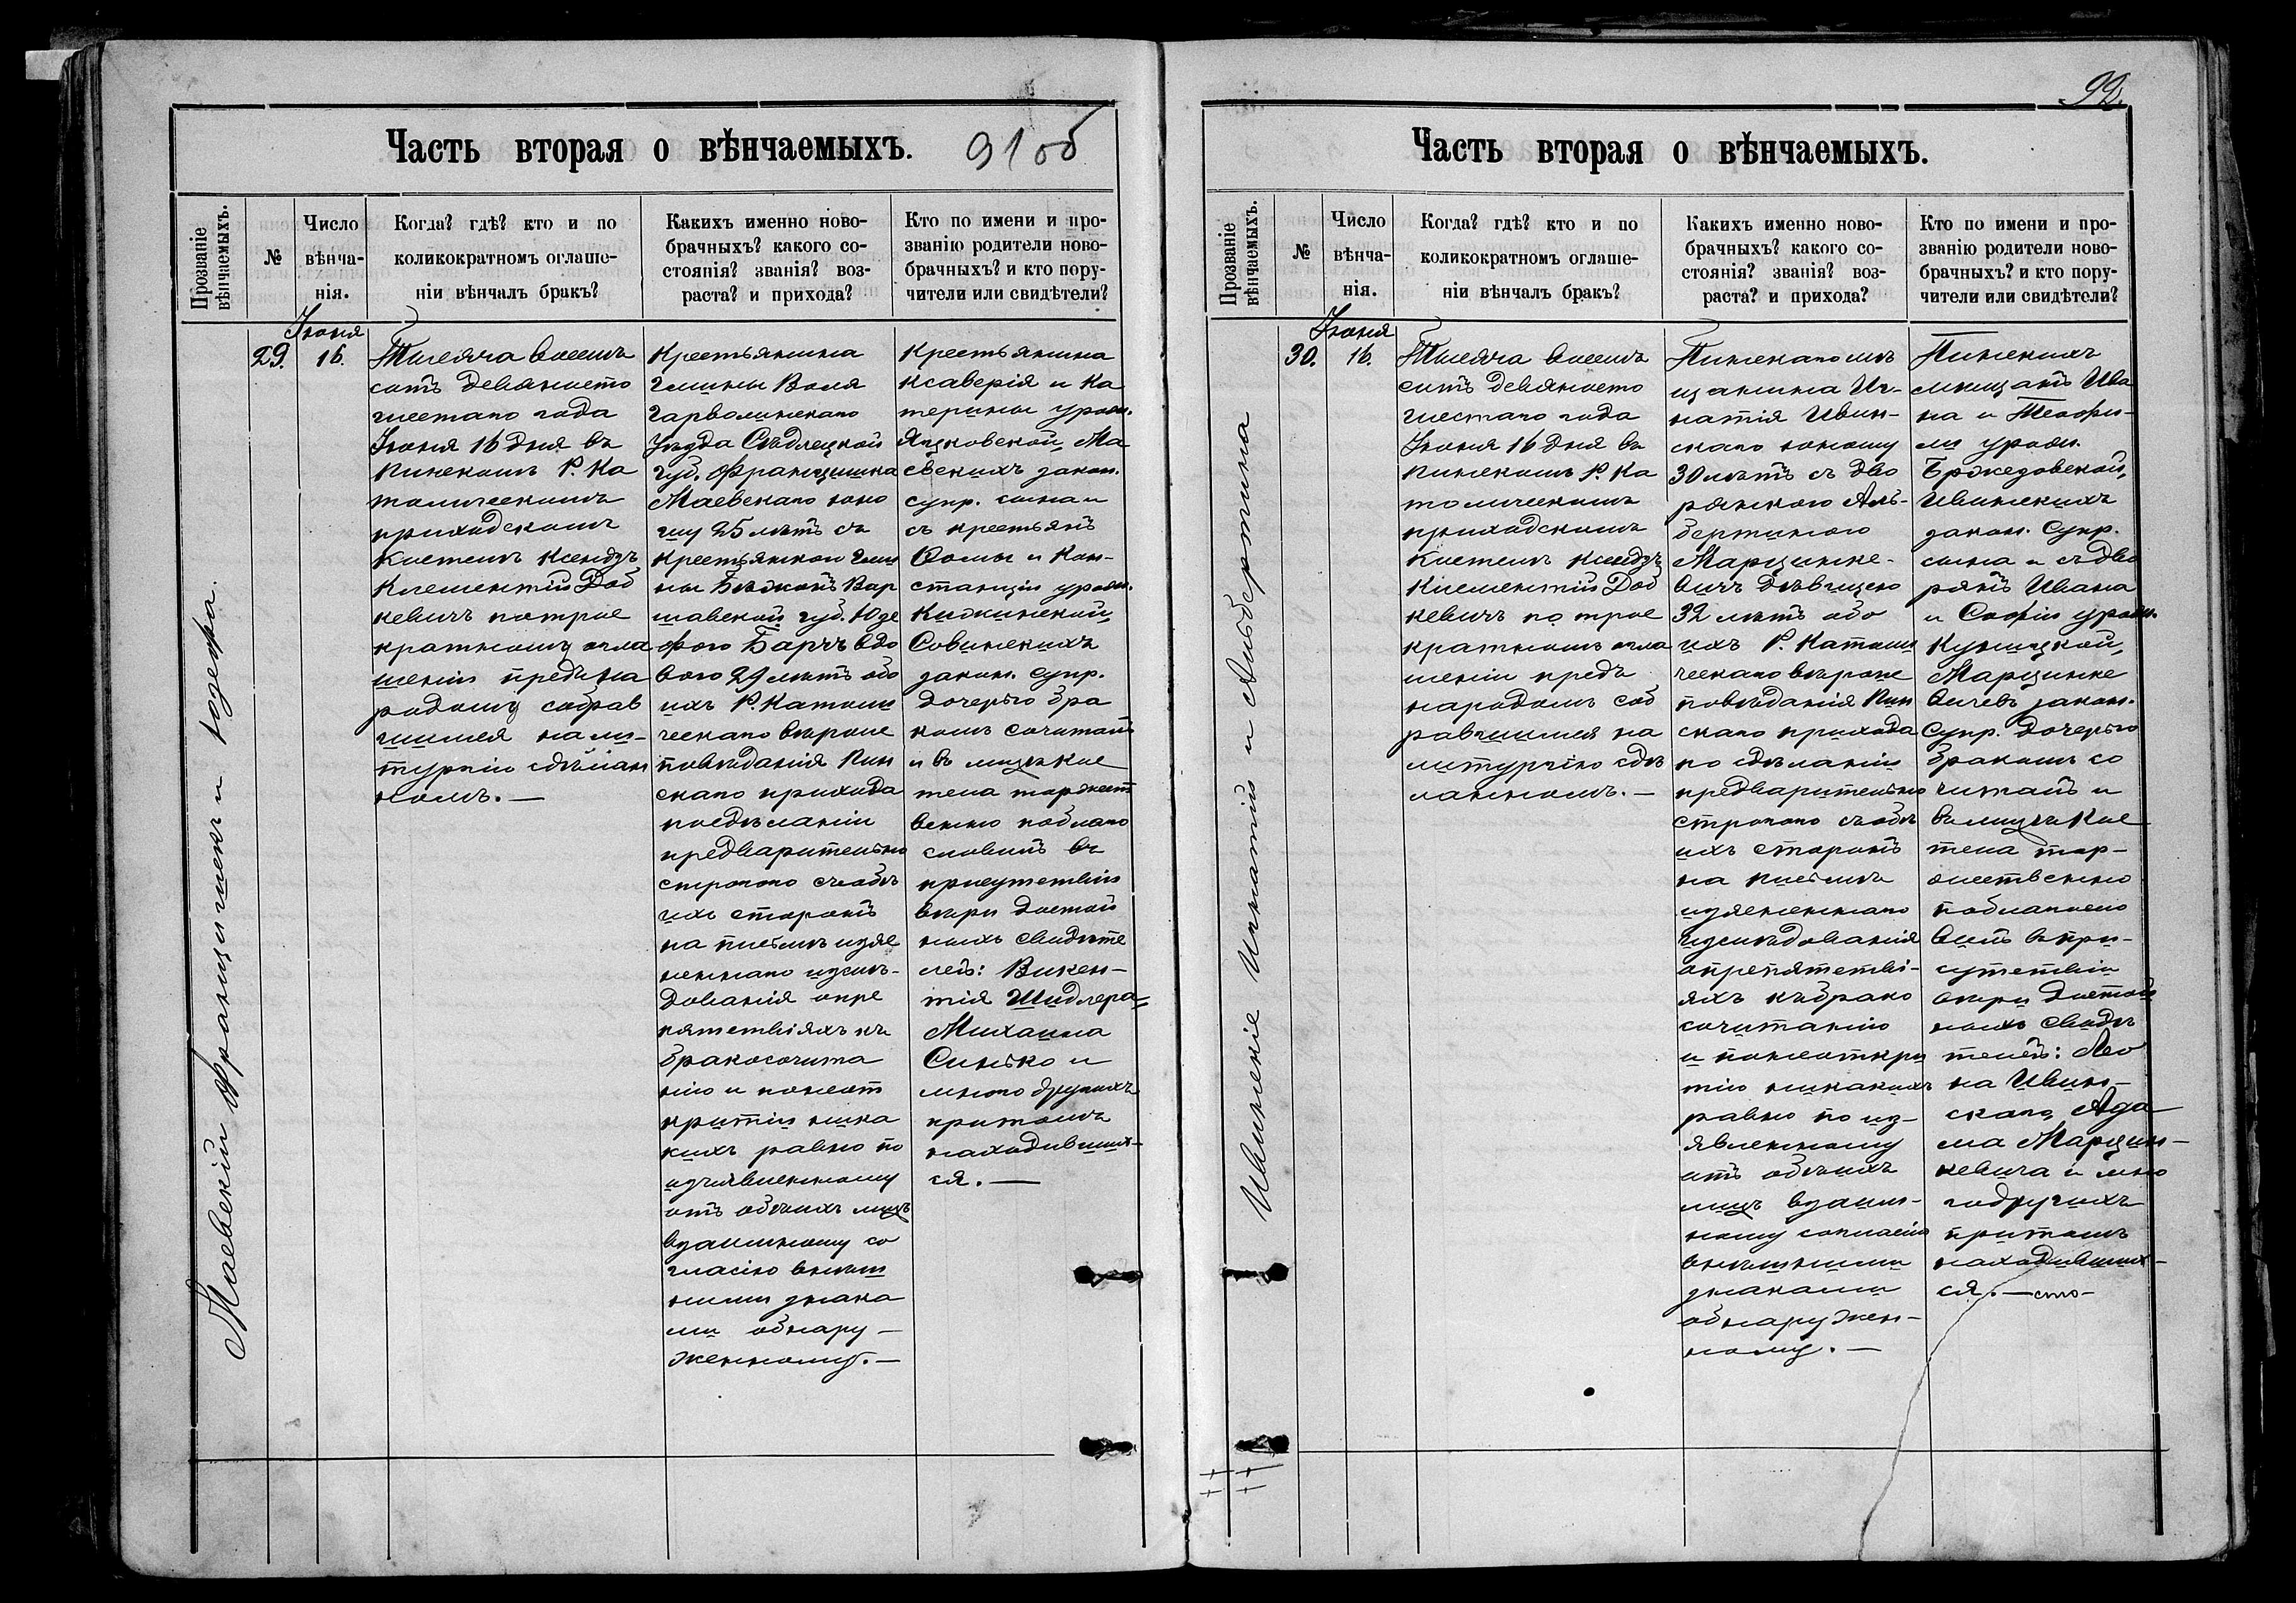 91 об
Часть вторая о вѣнчаемыхъ.
Прозваніе вѣнчаемыхъ.
№
Число вѣнча-
нія.
Когда? гдѣ? кто и по
коликократномъ оглаше-
ніи вѣнчалъ бракъ?
Какихъ именно ново-
брачныхъ? какого со-
стоянія? званія? воз-
раста? и прихода?
Кто по имени и про-
званію родители ново-
брачныхъ? и кто пору-
чители или свидѣтели?
Маевскій Францишекъ и Юзефа.
29.
Іюня
16.
Тысяча восемь
сотъ девяносто
шестаго года
Іюня 16 дня въ
Пинскомъ Р. Ка
толическомъ
приходскомъ
Костелѣ Ксендзъ
Климентій Дов
кевичъ потрое
кратному огла
шеніи предъ на
родому собрав
шимся на ли-
тургіи сдѣлан
номъ.—
Крестьянина
гмины Воля
Гарволинскаго
уѣзда Сѣдлецкой
губ. Францишка
Маевскаго юно
шу 25 лѣтъ съ
крестьянкой гми
ны Вар
шавской губ. Юзе
фою Барчъ вдо
вою 29 лѣтъ обо
ихъ Р. Католи
ческаго вѣроис
повѣданія Пин
скаго прихода
посдѣланіи
предварительно
строгого съобѣ
ихъ сторонъ
на письмѣ изъяс
неннаго изслѣ-
дованія о пре
пятствіяхъ къ
бракосочита
нію и понеот
крытіи ника
кихъ равно по
изъявленному
отъ обѣихъ лицъ
взаимному со
гласію внѣш
ними знака
ми обнару—
женному.—
Крестьянина
Ксаверія и Ка
терины урожд.
Яцковской, Ма
евскихъ закон.
супр. сына и
съ крестьянъ
Ѳомы и Кон-
станціи урожд.
Совинскихъ
закон. супр.
дочерью бра
комъ сочиталъ
и въ лицѣ Кос
тела торжест
венно поблаго
словилъ въ
присутствіи
вѣры достой
ныхъ свидѣте
лей: Викен-
тія Шидлера,
Михаила
Синько и
много другихъ
притомъ
находивших-
ся.—
92.
Часть вторая о вѣнчаемыхъ.
Прозваніе вѣнчаемыхъ.
№
Число
вѣнча-
нія.
Когда? гдѣ? кто и по
коликократномъ оглаше-
ніи вѣнчалъ бракъ?
Какихъ именно ново-
брачныхъ? какого со-
стоянія? званія? воз-
раста? и прихода?
Кто по имени и про-
званію родители ново-
брачныхъ? и кто пору-
чители или свидѣтели?
Ивинскіе Игнатій и Альбертина
30.
Іюня
16.
Тысяча восемь
сотъ девяносто
шестаго года
Іюня 16 дня въ
Пинскомъ Р. Ка
толическомъ
приходскомъ
Костелѣ Ксендзъ
Климентій Дов
кевичъ по трое
кратномъ огла
шеніи предъ
народомъ соб
равшимся на
литургію сдѣ
ланномъ.—
Пинскаго мѣ
щанина Иг-
натія Ивин-
скаго юношу
30 лѣтъ съ дво
рянкою Аль-
бертиною
Марцинке-
вичъ дѣвицею
32 лѣтъ обо
ихъ Р. Католи
ческаго вѣроис
повѣданія Пин
скаго прихода
по сдѣланіи
предварительно
строгого съобѣ
ихъ сторонъ
на письмѣ
изъясненнаго
изслѣдованія
о препятстві-
яхъ къ брако
сочитанію
и понеоткры
тію никакихъ
равно по из-
явленному
отъ обѣихъ
лицъ взаим-
ному согласію
внѣшними
знаками
обнаружен-
ному.—
Пинскихъ
мѣщанъ Ива
на и Теофи-
ли урожд.
Бржедовской,
Ивинскихъ
закон. супр.
сына и съ дво
рянъ Ивана
и Софіи урожд.
Куницкой,
Марцинке
вичевъ закон.
супр. дочерью
бракомъ со
читалъ и
въ лицѣ Кос
тела тор-
жественно
поблагосло
вилъ въ при-
сутствіи
вѣры достой
ныхъ свидѣ
телей: Лео
на Ивин-
скаго, Ада
ма Марцин-
кевича и мно
го другихъ
притомъ
находивших-
ся.—